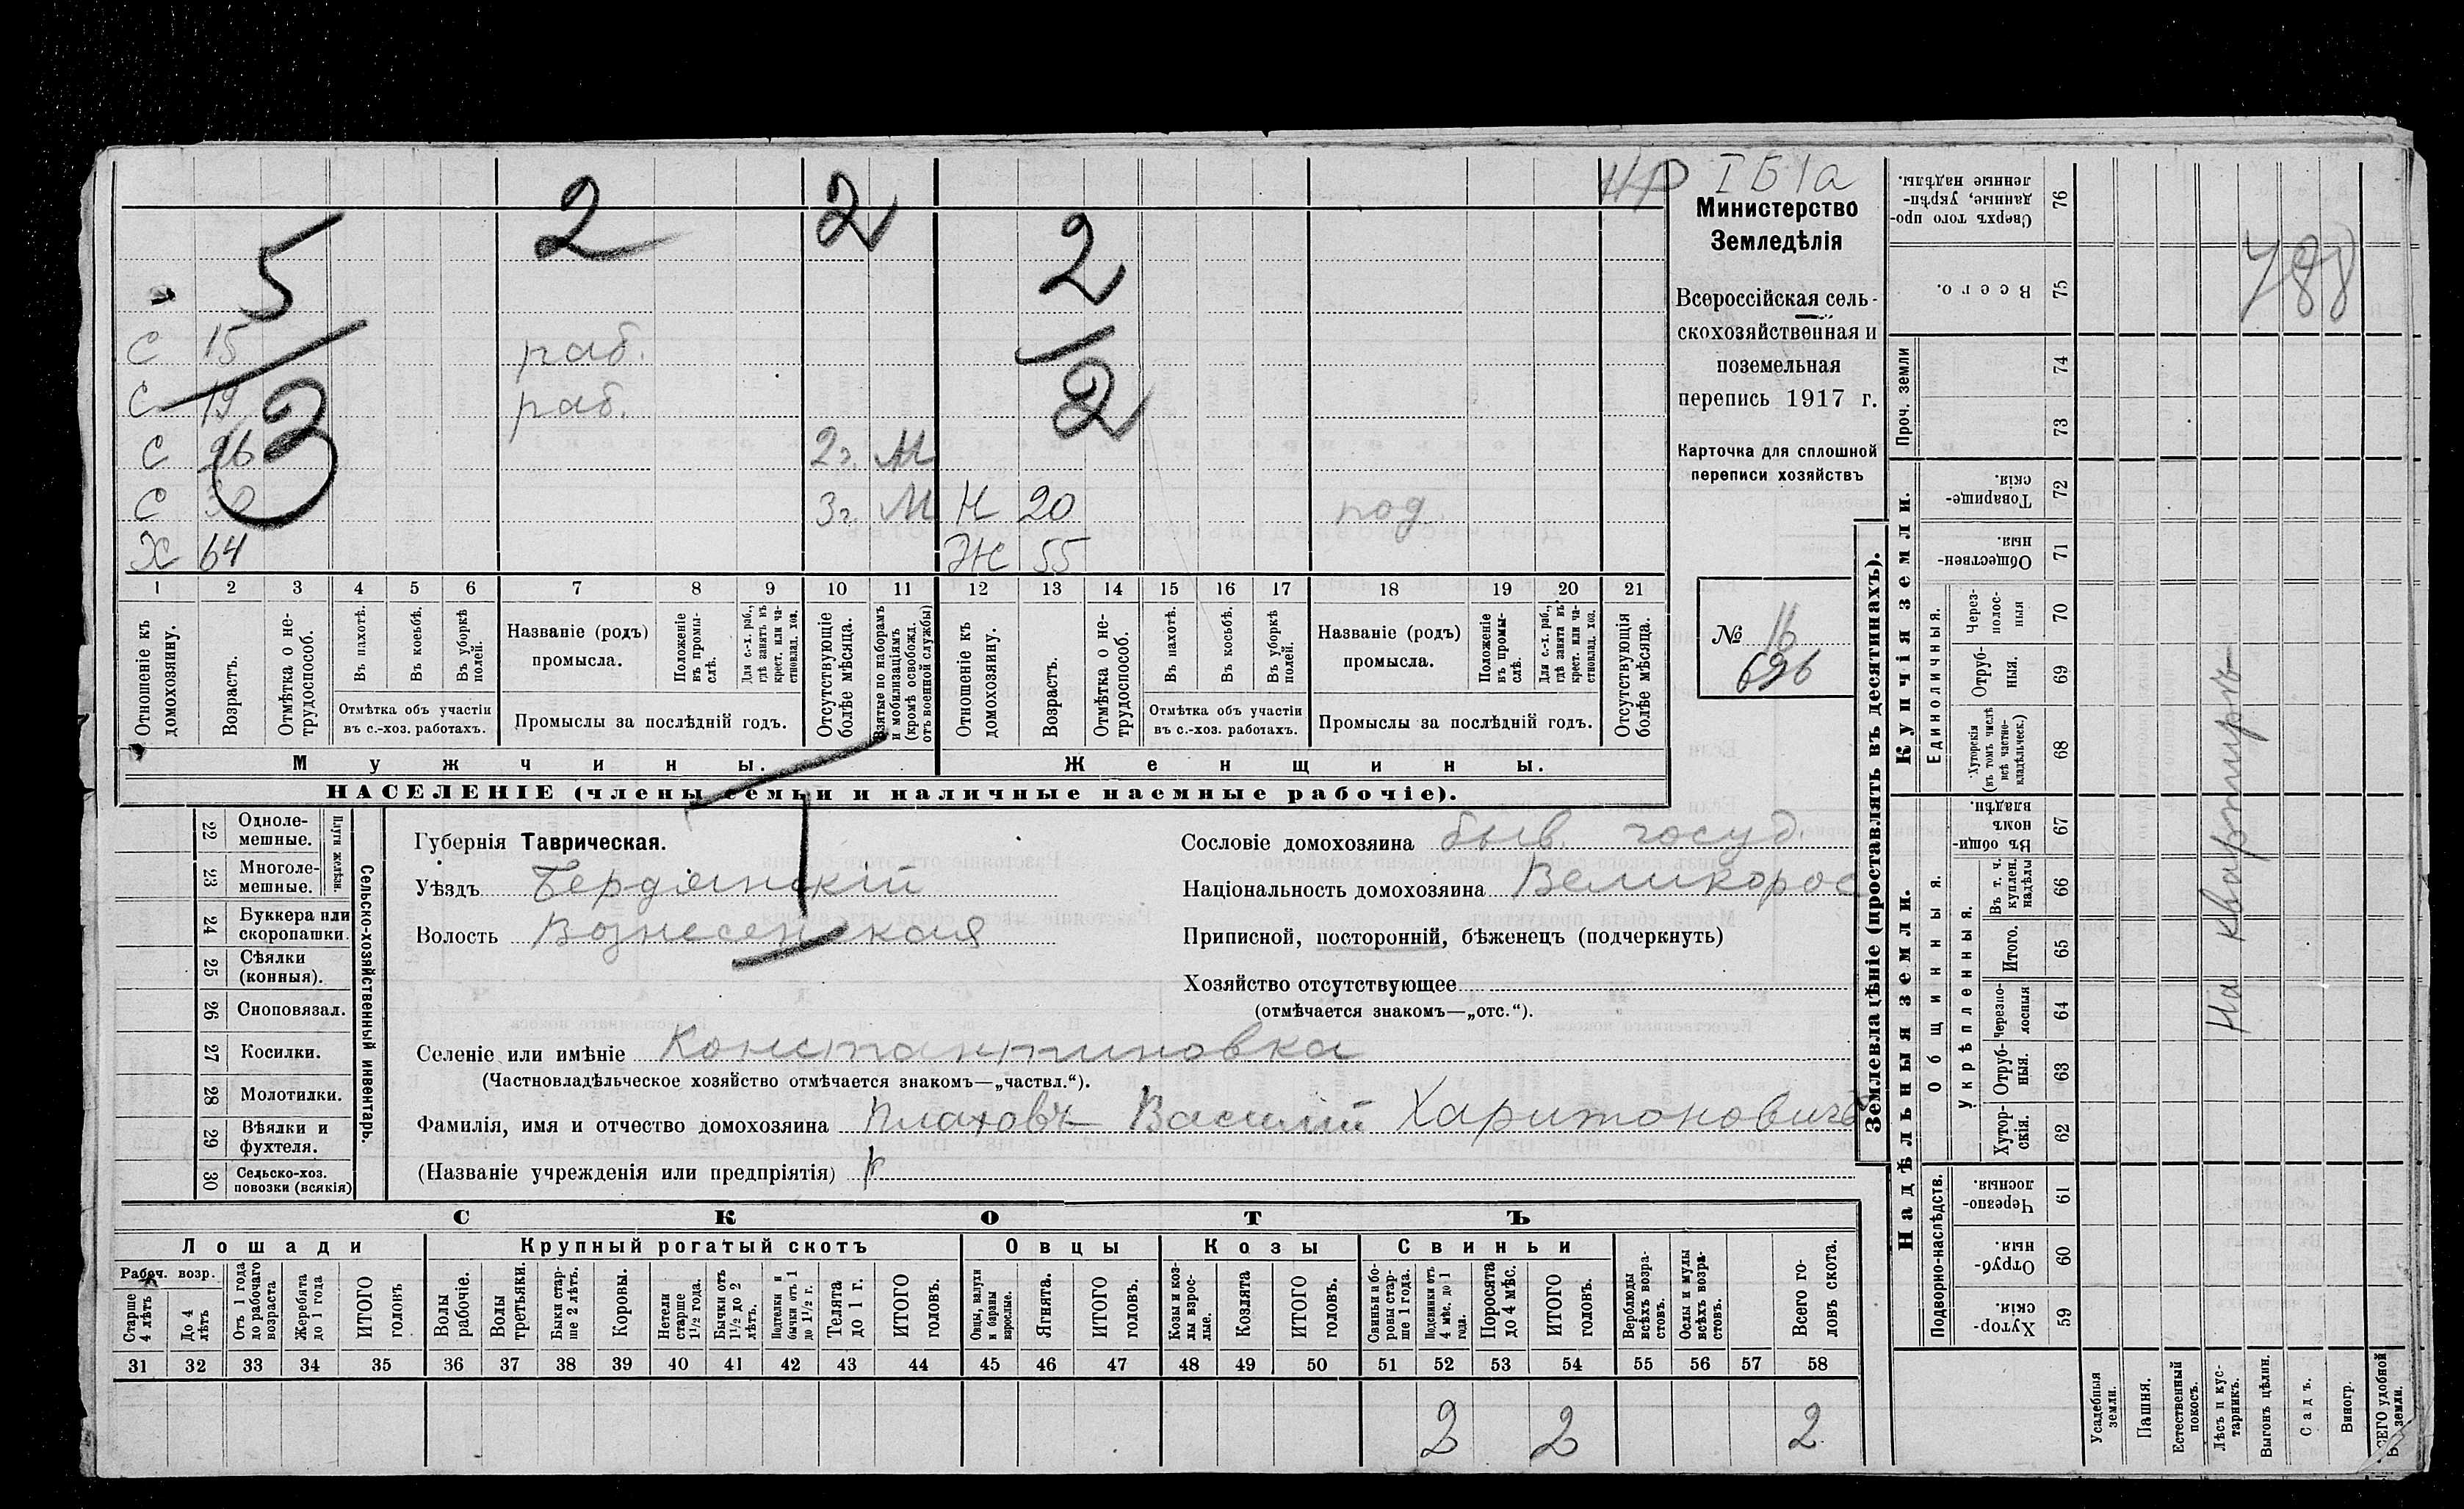 2 2 НР I Б 1а
5 2
С 15 раб.
2
С 19 раб.
3
С 26 2г. М
С 30 3г. М Н 20 под.
Х 64 Ж 55
1 2 3 4 5 6 7 8 9 10 11 12 13 14 15 16 17 18 19 20 21
Отношеніе къ домохозяину.
Возрастъ.
Отмѣтка о нетрудоспособ.
Въ пахотѣ.
Въ косьбѣ.
Въ уборкѣ полей.
Отмѣтка объ участіи въ с.-хоз. работахъ.
Названіе (родъ) промысла.
Положеніе въ промыслѣ.
Для с.-х. раб., гдѣ занятъ въ крест. или частновлад. хоз.
Промыслы за послѣдній годъ.
Отсутствующіе болѣе мѣсяца.
Взятые по наборамъ и мобилизаціямъ (кромѣ освобожд. отъ военной службы)
Отношеніе къ домохозяину.
Возрастъ.
Отмѣтка о нетрудоспособ.
Въ пахотѣ.
Въ косьбѣ.
Въ уборкѣ полей.
Отмѣтка объ участіи въ с.-хоз. работахъ.
Названіе (родъ) промысла.
Положеніе въ промыслѣ.
Для с.-х. раб., гдѣ занята въ крест. или частновлад. хоз.
Промыслы за послѣдній годъ.
Отсутствующія болѣе мѣсяца.
Мужчины. Женщины.
НАСЕЛЕНІЕ (члены семьи и наличные наемные рабочіе).
Министерство
Земледѣлія
Всероссійская сель-
скохозяйственная и
поземельная
перепись 1917 г.
Карточка для сплошной
переписи хозяйствъ
№ 16
696
22 Однолемешные.
23 Многолемешные.
Плуги желѣзн.
24 Буккера или скоропашки.
25 Сѣялки (конныя).
26 Сноповязал.
27 Косилки.
28 Молотилки.
29 Вѣялки и фухтеля.
30 Сельско-хоз. повозки (всякія)
Сельско-хозяйственный инвентарь.
Губернія Таврическая.
Уѣздъ Бердянскій
Волость Вознесенская
Сословіе домохозяина быв. госуд.
Національность домохозяина Великорос
Приписной, посторонній, бѣженецъ (подчеркнуть)
Хозяйство отсутствующее
(отмѣчается знакомъ—„отс.“).
Селеніе или имѣніе Константиновка
(Частновладѣльческое хозяйство отмѣчается знакомъ—„частвл.“).
Фамилія, имя и отчество домохозяина Плаховъ Василій Харитоновичъ
(Названіе учрежденія или предпріятія)
СКОТЪ
Лошади Крупный рогатый скотъ Овцы Козы Свиньи
Рабоч. возр.
Старше 4 лѣтъ
До 4 лѣтъ
Отъ 1 года до рабочаго возраста
Жеребята до 1 года
ИТОГО головъ
Волы рабочіе.
Волы третьяки.
Быки старше 2 лѣтъ.
Коровы.
Нетели старше 1½ года.
Бычки отъ 1½ до 2 лѣтъ.
Подтелки и бычки отъ 1 до 1½ г.
Телята до 1 г.
ИТОГО головъ.
Овцы, валухи и бараны взрослые.
Ягнята.
ИТОГО головъ.
Козы и козлы взрослые.
Козлята
ИТОГО головъ.
Свиньи и боровы старше 1 года.
Подсвинки отъ 4 мѣс. до 1 года.
Поросята до 4 мѣс.
ИТОГО головъ.
Верблюды всѣхъ возрастовъ.
Ослы и мулы всѣхъ возрастовъ.
Всего головъ скота.
31 32 33 34 35 36 37 38 39 40 41 42 43 44 45 46 47 48 49 50 51 52 53 54 55 56 57 58
2 2 2
Землевладѣніе (проставлять въ десятинахъ).
Надѣльныя земли. Купчія земли. Проч. земли
Подворно-наслѣдств.
Общинныя.
Укрѣпленныя.
Единоличныя.
59 Хуторскія
60 Отрубныя.
61 Черезполосныя
62 Хуторскія.
63 Отрубныя.
64 Черезполосныя
65 Итого.
66 Въ т. ч. куплен. надѣлы
67 Въ общинномъ владѣн.
68 Хуторскія (въ томъ числѣ всѣ частновладѣльческ.)
69 Отрубныя.
70 Черезполосныя
71 Общественныя.
72 Товарищескія.
73
74
75 Всего.
76 Сверхъ того проданные, укрѣпленные надѣлы.
Усадебныя земли.
Пашня.
Естественный покосъ.
Лѣсъ и кустарникъ.
Выгонъ цѣлин.
Садъ.
Виногр.
ВСЕГО удобной земли.
На квартирѣ
788